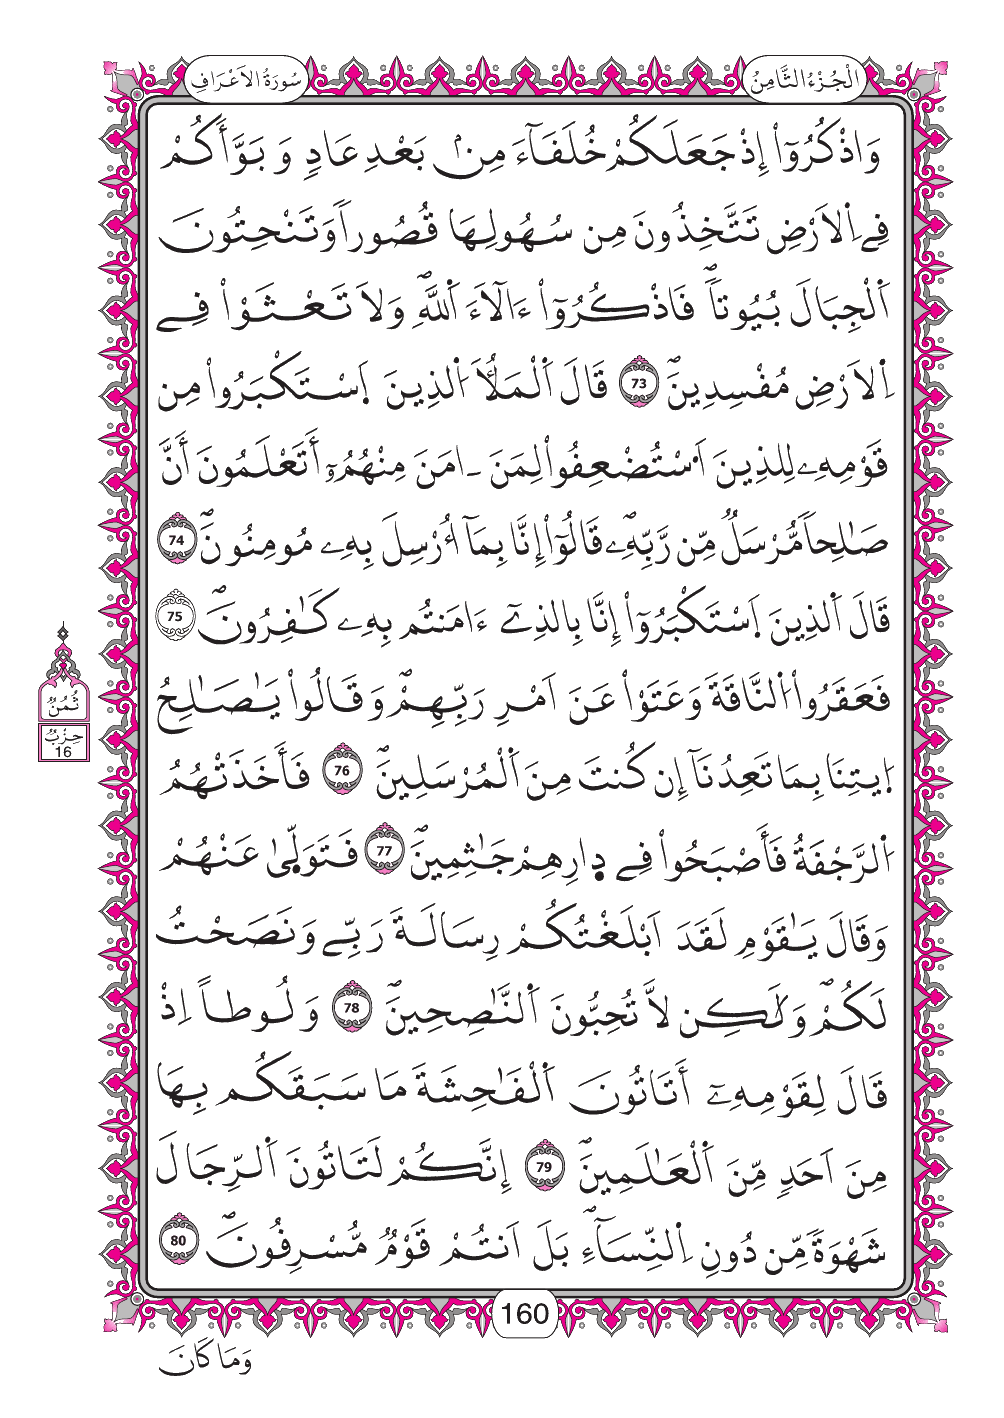 الْجُزْءُ الثَّامِنُ
سُورَةُ الَاعْرَافِ
وَاذْكُرُوٓاْ إِذْ جَعَلَكُمْ خُلَفَآءَ مِنۢ بَعْدِ عَادٖ وَبَوَّأَكُمْ
فِے اِ۬لَارْضِ تَتَّخِذُونَ مِن سُهُولِهَا قُصُوراٗ وَتَنْحِتُونَ
اَ۬لْجِبَالَ بُيُوتاٗۖ فَاذْكُرُوٓاْ ءَالَآءَ اَ۬للَّهِۖ وَلَا تَعْثَوْاْ فِے
اِ۬لَارْضِ مُفْسِدِينَۖ 73 قَالَ اَ۬لْمَلَأُ اُ۬لذِينَ اَ۪سْتَكْبَرُواْ مِن
قَوْمِهِۦ لِلذِينَ اَ۟سْتُضْعِفُواْ لِمَنَ ـ اٰمَنَ مِنْهُمُۥٓ أَتَعْلَمُونَ أَنَّ
صَٰلِحاٗ مُّرْسَلٞ مِّن رَّبِّهِۦۖ قَالُوٓاْ إِنَّا بِمَآ أُرْسِلَ بِهِۦ مُومِنُونَۖ 74
قَالَ اَ۬لذِينَ اَ۪سْتَكْبَرُوٓاْ إِنَّا بِالذِےٓ ءَامَنتُم بِهِۦ كَٰفِرُونَۖ 75
فَعَقَرُواْ اُ۬لنَّاقَةَ وَعَتَوْاْ عَنَ اَمْرِ رَبِّهِمْۖ وَقَالُواْ يَٰصَٰلِحُ
اُ۪يتِنَا بِمَا تَعِدُنَآ إِن كُنتَ مِنَ اَ۬لْمُرْسَلِينَۖ 76 فَأَخَذَتْهُمُ
اُ۬لرَّجْفَةُ فَأَصْبَحُواْ فِے دِارِهِمْ جَٰثِمِينَۖ 77 فَتَوَلّ۪يٰ عَنْهُمْ
وَقَالَ يَٰقَوْمِ لَقَدَ اَبْلَغْتُكُمْ رِسَالَةَ رَبِّے وَنَصَحْتُ
لَكُمْۖ وَلَٰكِن لَّا تُحِبُّونَ اَ۬لنَّٰصِحِينَۖ 78 وَلُوطاً اِذْ
قَالَ لِقَوْمِهِۦٓ أَتَاتُونَ اَ۬لْفَٰحِشَةَ مَا سَبَقَكُم بِهَا
مِنَ اَحَدٖ مِّنَ اَ۬لْعَٰلَمِينَۖ 79 إِنَّكُمْ لَتَاتُونَ اَ۬لرِّجَالَ
شَهْوَةٗ مِّن دُونِ اِ۬لنِّسَآءِۖ بَلَ اَنتُمْ قَوْمٞ مُّسْرِفُونَۖ 80
ثُمُنٌ
حِزْبٌ
16
160
وَمَا كَانَ